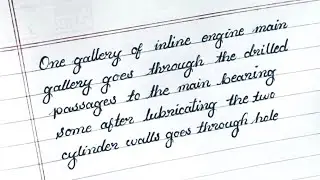 One gallery of inline engine main
gallery goes through the drilled
passages to the main bearing
some after lubricating the two
cylinder walls goes through hole